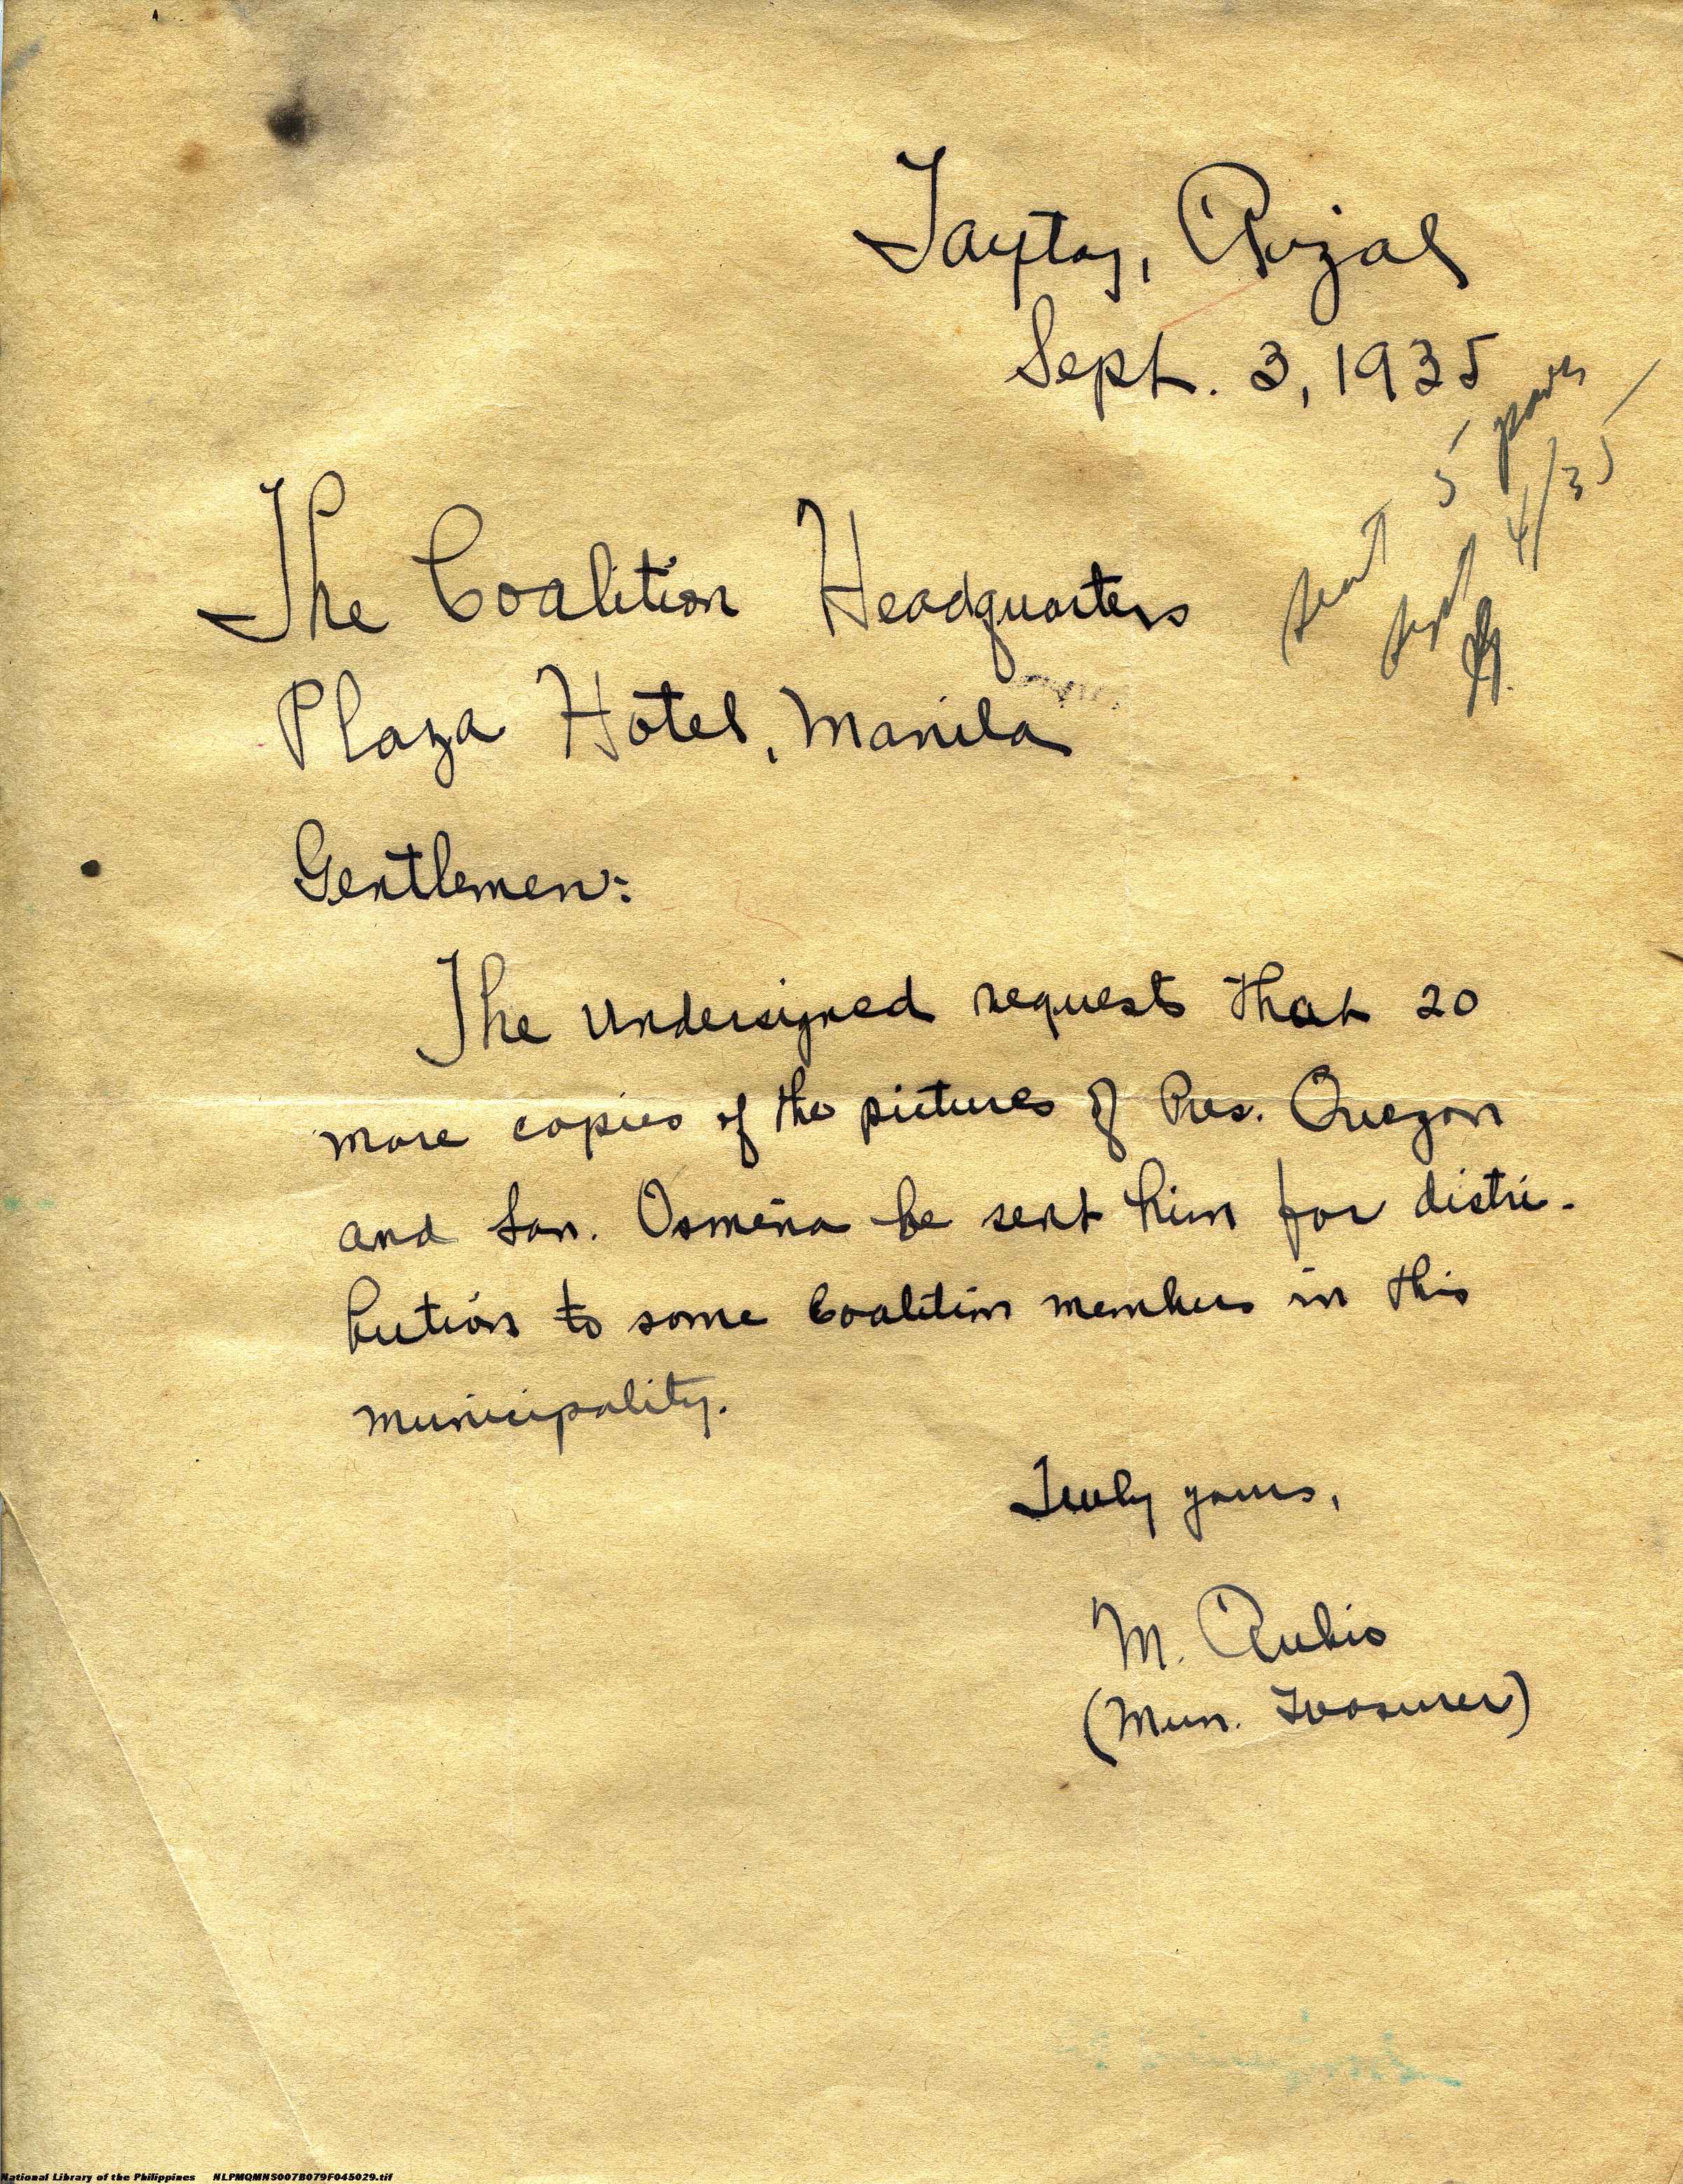 Taytay, Rizal
Sept. 3, 1935
sent 5 pairs
sept 4/35
The Coalition Headquarters
Plaza Hotel, Manila
Gentlemen:
The undersigned requests that 20
more copies of the pictures of Pres. Quezon
and Sen. Osmeña be sent him for distri-
bution to some Coalition members in this
municipality.
Truly yours,
M. Rubio
(Mun. Treasurer)
National Library of the Philippines NLPMQMNS007B079F045029.tif